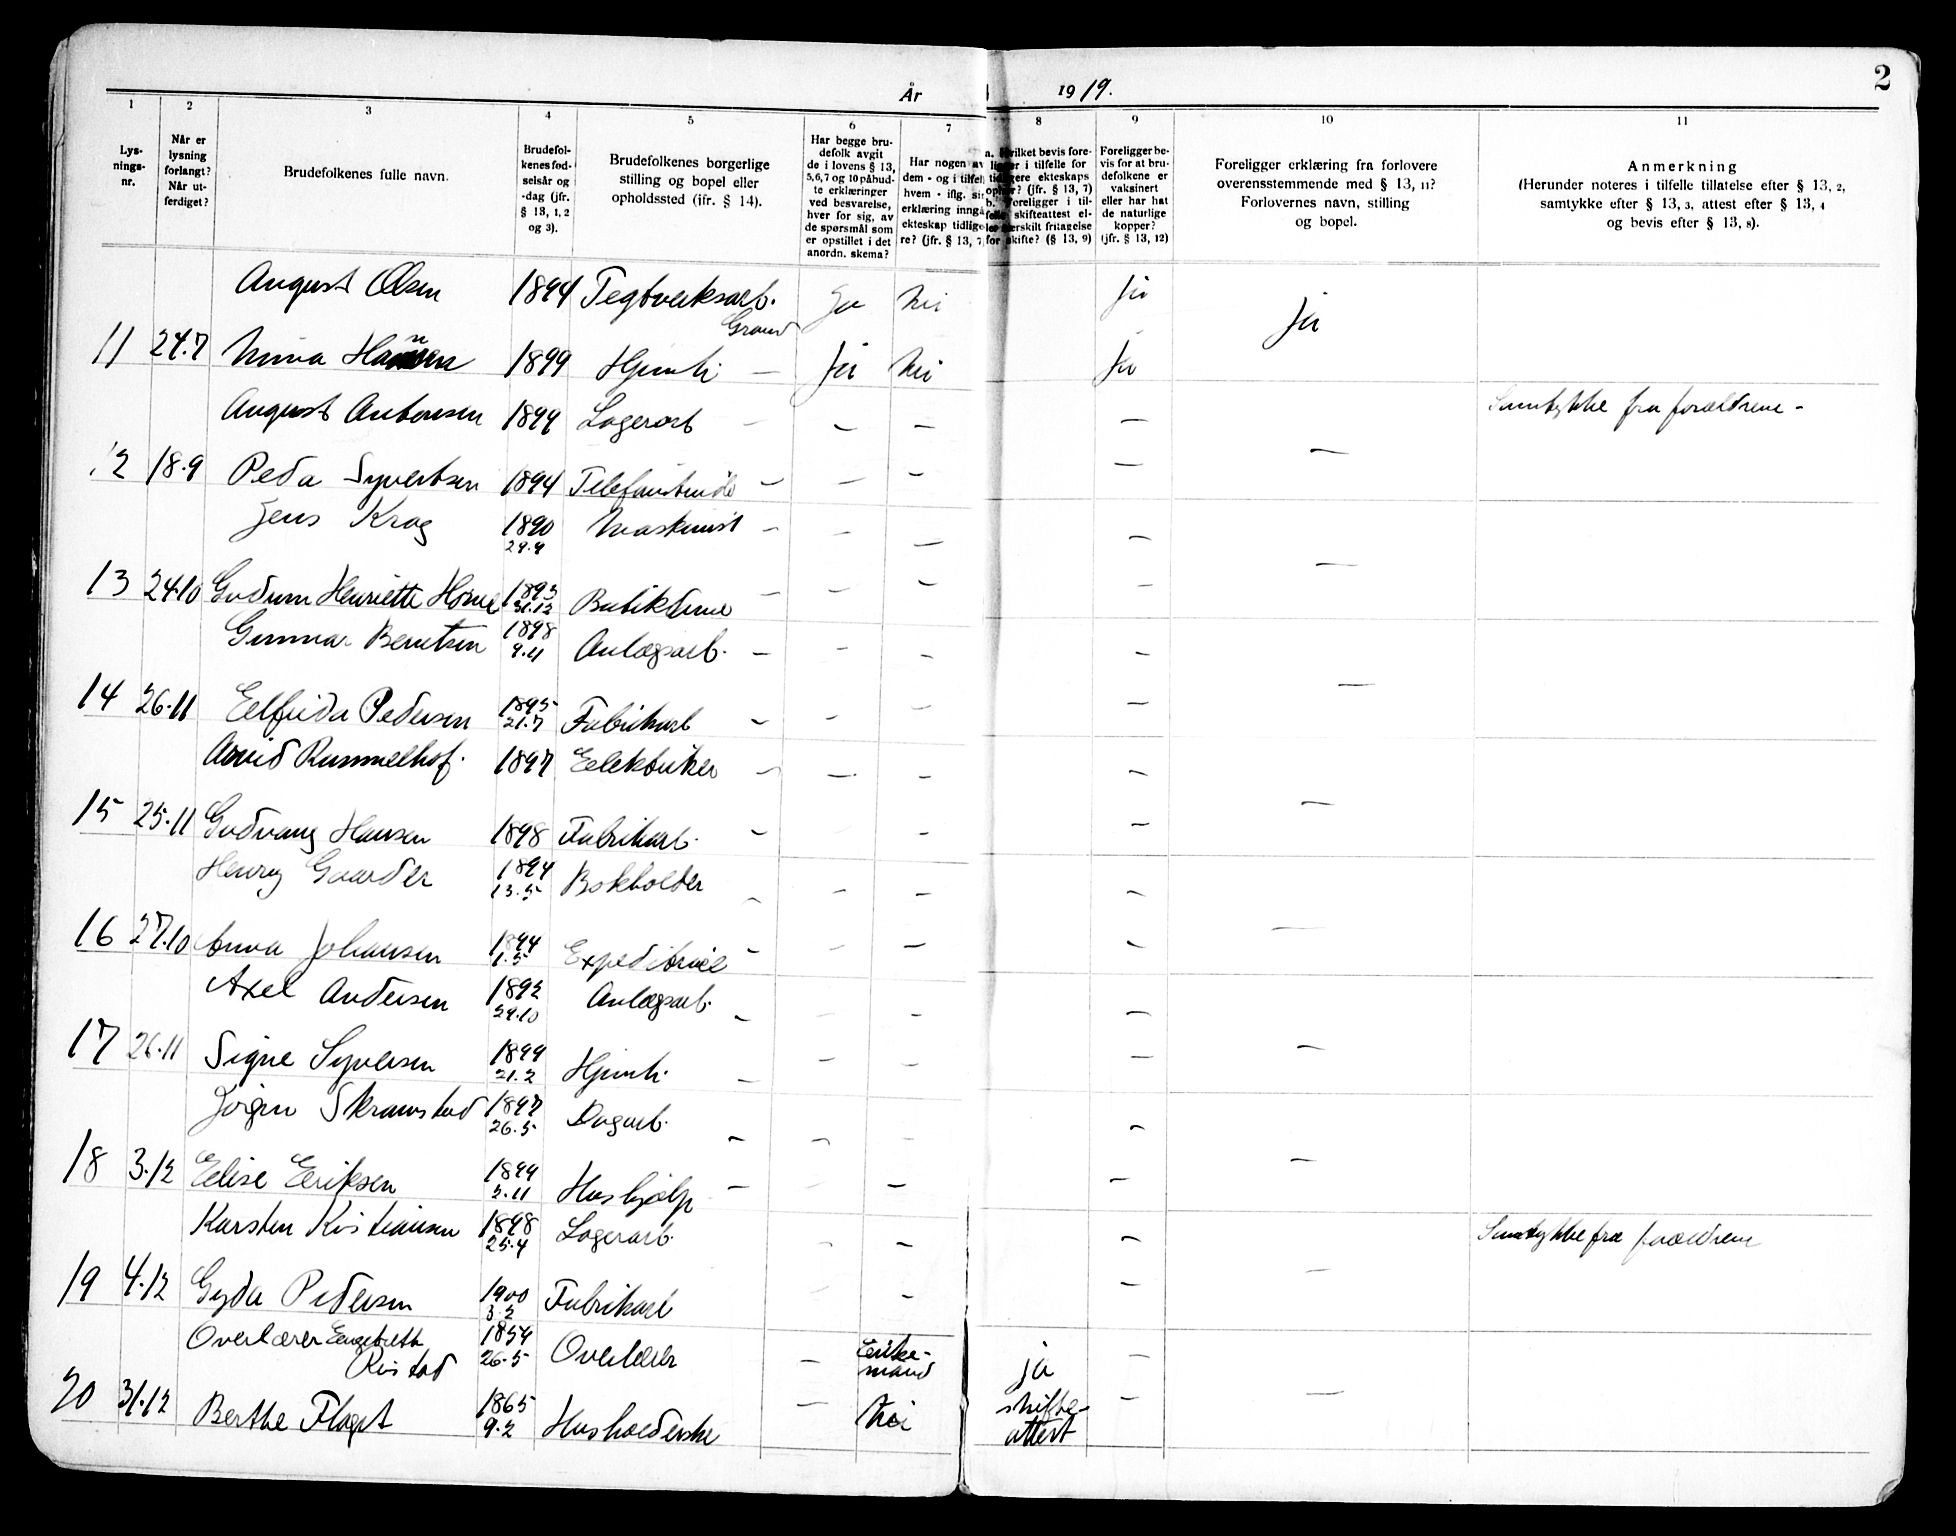 År 1919.
2
1
2
3
4
5
6
7
8
9
10
11
Lys-
nings-
nr.
Når er
lysning
forlangt?
Når ut-
ferdiget?
Brudefolkenes fulle navn.
Brudefol-
kenes fød-
selsår og
-dag (jfr.
§ 13, 1, 2
og 3).
Brudefolkenes borgerlige
stilling og bopel eller
opholdssted (jfr. § 14).
Har begge bru-
defolk avgit
de i lovens § 13,
5, 6, 7 og 10 påbud-
te erklæringer
ved besvarelse,
hver for sig, av
de spørsmål som
er opstillet i det
anordn. skema?
Har nogen av
dem - og i tilfel
hvem - iflg. si
erklæring inngå
ekteskap tidlige
re? (jfr. § 13, 7
a. Hvilket bevis fore-
ligger i tilfelle for
tidligere ekteskaps
ophør? (jfr. § 13, 7)
b. Foreligger i til-
felle skifteattest el-
ler særskilt fritagelse
for skifte? (§ 13, 9)
Foreligger be-
vis for at bru-
defolkene er
vaksinert
eller har hat
de naturlige
kopper?
(jfr. § 13, 12)
Foreligger erklæring fra forlovere
overensstemmende med § 13, 11?
Forlovernes navn, stilling
og bopel.
Anmerkning
(Herunder noteres i tilfelle tillatelse efter § 13, 2,
samtykke efter § 13, 3, attest efter § 13, 4
og bevis efter § 13, 8).
August Olsen 1894 Tegtverksarb. Ja Nei Ja
Ja
11 24.7 Hansen 1899 Hjemb. — Ja Nei Ja
August Antonsen 1894 Lagerarb — — — — Samtykke fra forældrene -
12 18.9 Peda Syvertsen 1894 — — — — —
Jens Krog 1890 Maskinist — — — —
29.9
13 24.10 Gudrun Henriette 1893 — — — — —
31.12
Gunnar Berntsen 1898 Anlægsarb. — — — —
9.11
14 26.11 Elfrida Pedersen 1895 Fabrikarb — — — — —
21.7
Arvid Rummelhof. 1897 Elektriker — — — —
15 25.11 Gudvang Hansen 1898 Fabrikarb. — — — —
Henry Gaarder 1894 Bokholder — — — —
13.5
16 27.10 Anna Johansen 1894 — — — — —
1.5
Axel Andersen 1892 Anlægsarb. — — — —
29.10
17 26.11 Signe Syversen 1899 Hjemb. — — — — —
21.2
Jørgen Skramstad 1897 Dagarb. — — — —
26.5
18 3.12 Elise Eriksen 1899 Hushjelp — — — — —
Karsten Kristiansen 1898 Lagerarb. — — Samtykke fra forældrene
25.4
19 4.12 Gyda Pedersen 1900 Fabrikarb — — — —
3.2
Overlærer Engebreth 1854 Overlærer — Enke- ja —
Ristad 26.5 mand
20 31.12 Berthe Flagst 1865 Husholderske — Nei skifte- — —
9.2 attest